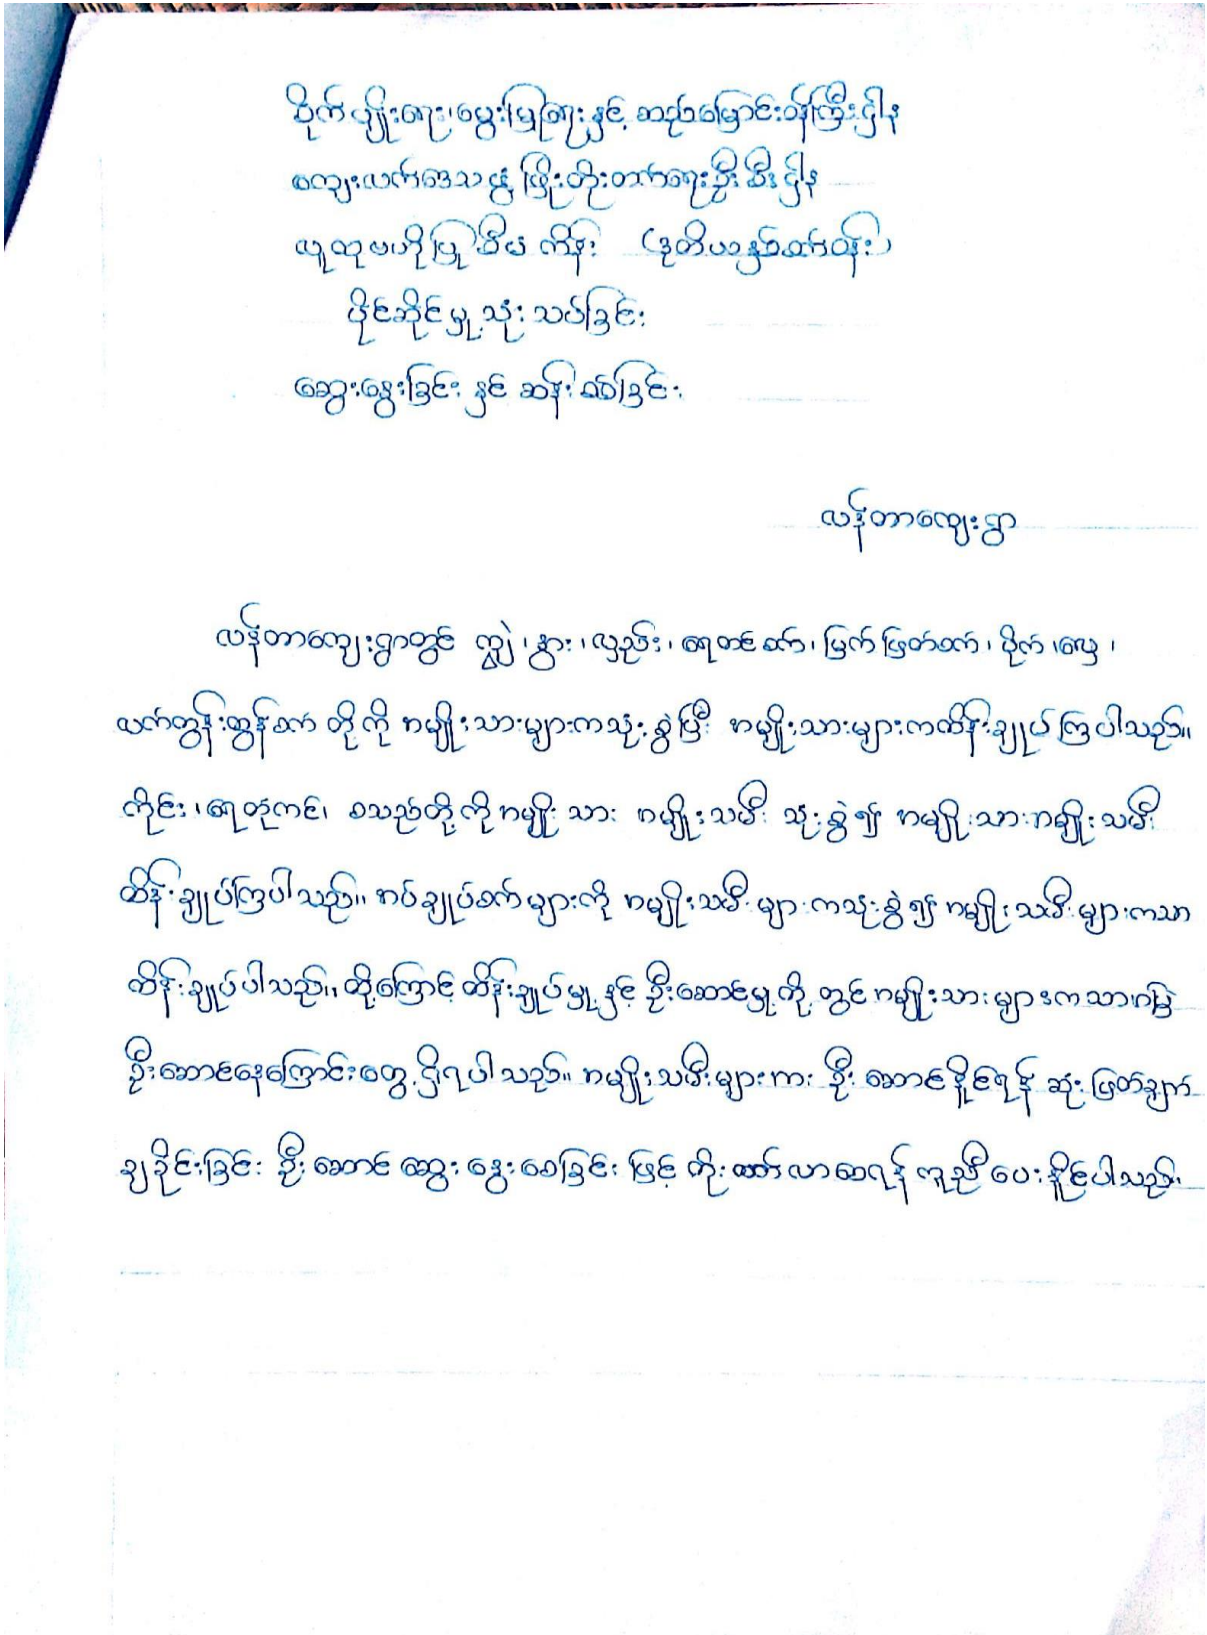 စိုက်ပျိုးရေး၊မွေးမြူရေးနှင့် ဆည်မြောင်းဝန်ကြီးဌါန
ကျေးလက်ဒေသဖွံ့ဖြိုးတိုးတက်ရေးဦးစီးဌါန
လူထုဗဟိုပြုစီမံကိန်း (ဒုတိယနှစ်ဆက်ဝန်း)
ပိုင်ဆိုင်မှု့သုံးသပ်ခြင်း
ဆွေးနွေးခြင်း နှင့် ဆန်းစစ်ခြင်း
လန်တာကျေးရွာ
လန်တာကျေးရွာတွင် ကျွဲ၊နွား၊လှည်း၊ရေတင်စက်၊မြက်ဖြတ်စက်၊ပိုက်၊လှေ၊
လက်တွန်းထွန်စက် တို့ကို အမျိုးသားများကသုံးစွဲပြီး အမျိုးသားများကထိန်းချုပ်ကြပါသည်။
ကိုင်း၊ရေတုံကင်၊ စသည်တို့ကိုအမျိုးသား အမျိုးသမီး သုံးစွဲ၍ အမျိုးသားအမျိုးသမီး
ထိန်းချုပ်ကြပါသည်။ အပ်ချုပ်စက်များကို အမျိုးသမီးများကသုံးစွဲ၍ အမျိုးသမီးများကသာ
ထိန်းချုပ်ပါသည်။ ထို့ကြောင့် ထိန်းချုပ်မှု့နှင့် ဦးဆောင်မှု့ကို့ တွင်အမျိုးသားများကသာအမြဲ
ဦးဆောင်နေကြောင်းတွေ့ရှိရပါသည်။ အမျိုးသမီးများကး ဦးဆောင်နိူင်ရန် ဆုံးဖြတ်ချက်
ချခိုင်းခြင်း ဦးဆောင်ဆွေးနွေးစေခြင်း ဖြင့် တိုးတက်လာစေရန် ကူညီပေးနိူင်ပါသည်။